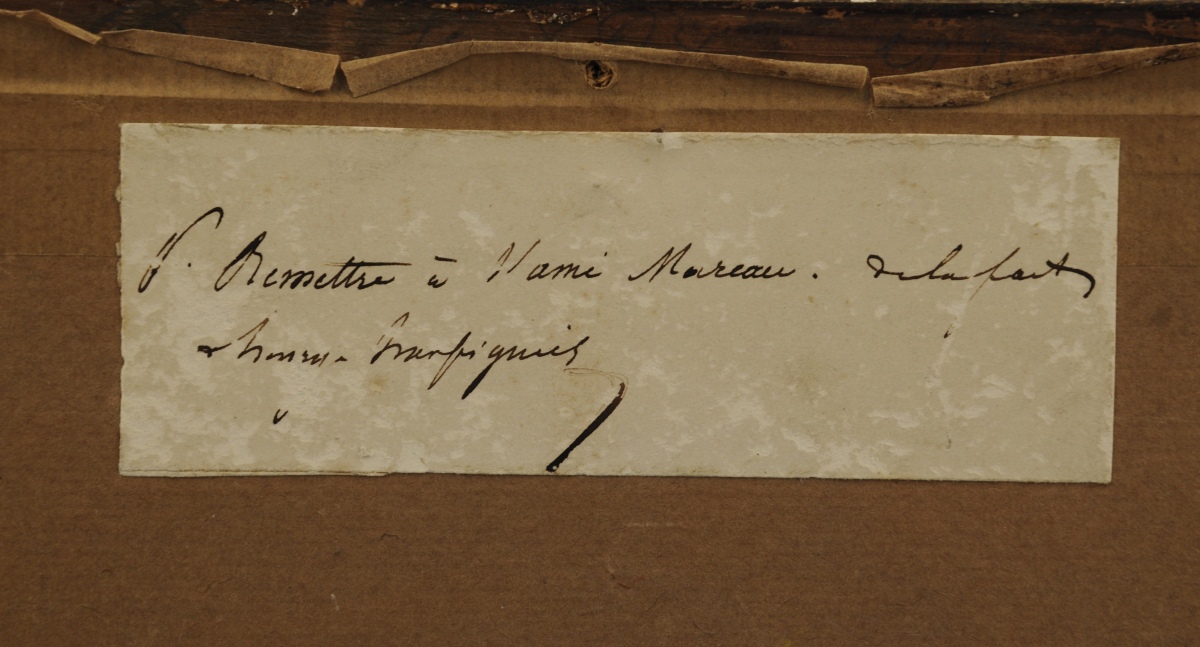 P. Remettre à l'ami Mareau. de la part
d henry harpignies